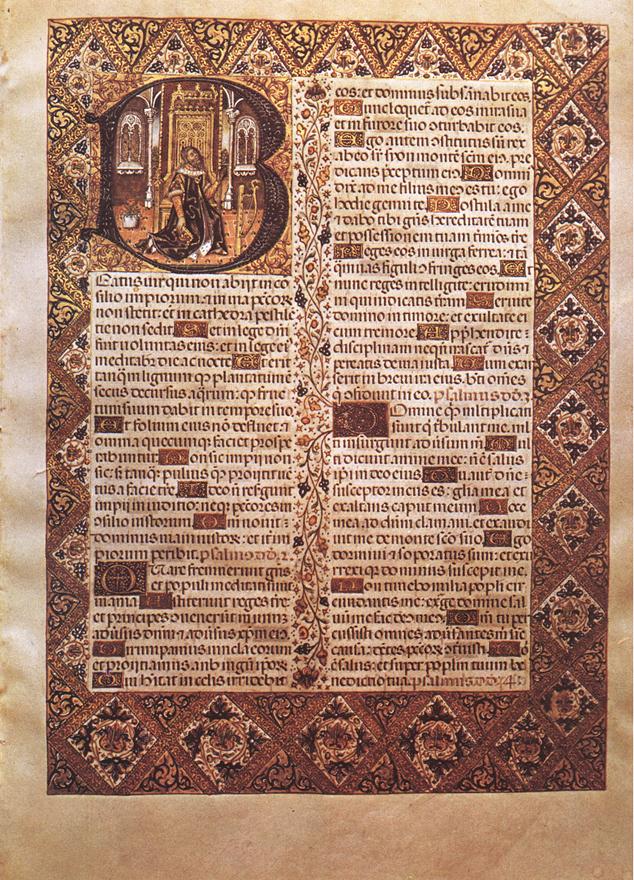 Beatus vir qui non abijt in co
silio impiorum: et in via peccator
non stetit: et in cathedra pestile
tie non sedit. Sed et in lege dni
fuit voluntas eius: et in lege ei
meditabr die ac nocte. Et erit
tanq lignum qd plantatum
secus decursus aqrum: qd fruc
tum suum dabit in tempore suo.
Et folium eius no defluet: et
omnia quecunque faciet prospe
rabuntur. Non sic impij non
sic: sed tanq puluis que proijcit uen
tus a facie tre. Ideo non resurgunt
impij in iudicio: neque peccatores in
consilio iustorum. Quoniam nouit
dominus viam iustorum: et iter im
piorum peribit. psalmus
Quare fremuerunt gentes
et populi meditati sunt
inania. Astiterunt reges tre:
et principes conuenerunt in unum
aduersus dnm et aduersus xpm eius.
Dirumpamus vincla eorum
et proijciamus a nobis iugum ipsor
Qui habitat in celis irridebit
eos: et dominus subsannabit eos.
Tunc loquet ad eos in ira sua
et in furore suo conturbabit eos.
Ego autem constitutus sum rex
ab eo super syon monte sctm eius: pre
dicans preceptum eius. Dominus
dixit ad me filius meus es tu: ego
hodie genui te. Postula a me
et dabo tibi gentes hereditatem tuam
et possessionem tuam terminos tre
Reges eos in virga ferrea: et tanq
vas figuli confringes eos. Et
nunc reges intelligite: erudimini
qui iudicatis terram. Seruite
domino in timore: et exultate ei
cum tremore. Apprehendite
disciplinam nequando irascatur dns et
pereatis de via iusta. Cum exar
serit in breui ira eius: beati omnes
qui confidunt in eo. psalmus
Domine quid multiplicati
sunt qui tribulant me: multi
insurgunt aduersum me. Mul
ti dicunt anime mee: non est salus
ipsi in deo eius. Tu autem dne
susceptor meus es: gloria mea et
exaltans caput meum. Voce
mea ad dnm clamaui: et exaudi
uit me de monte scto suo. Ego
dormiui et soporatus sum: et exur
rexi quia dominus suscepit me.
Non timebo milia populi cir
cundantis me: exurge domine sal
uum me fac deus meus. Quoniam tu per
cussisti omnes aduersantes michi sine
causa: dentes peccatorum contriuisti. Domini
est salus: et super populum tuum be
nedictio tua. psalmus